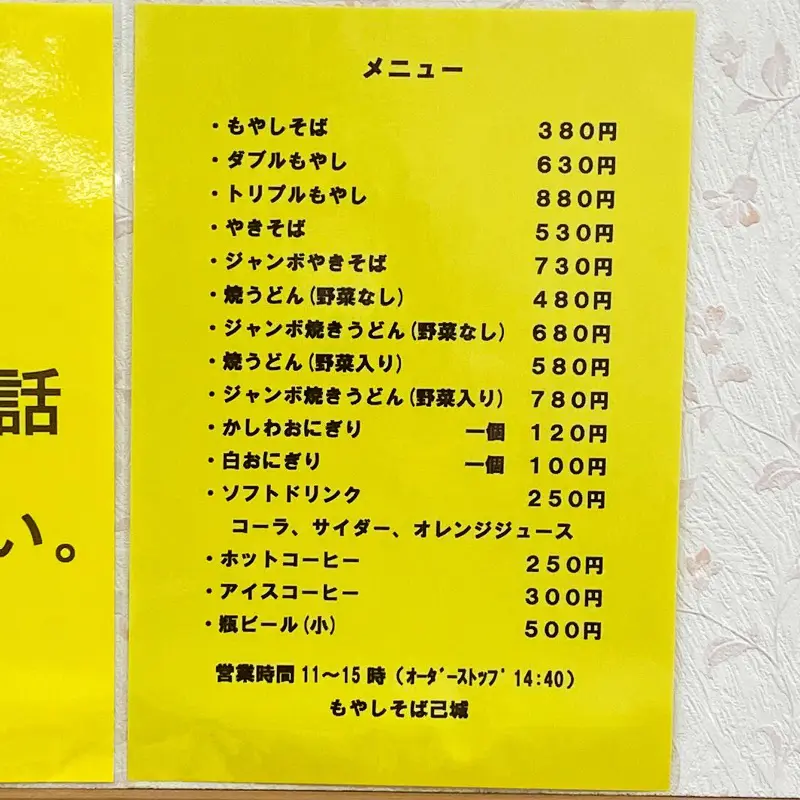 話
い。
メニュー
・もやしそば 380円
・ダブルもやし 630円
・トリプルもやし 880円
・やきそば 530円
・ジャンボやきそば 730円
・焼うどん(野菜なし) 480円
・ジャンボ焼きうどん(野菜なし) 680円
・焼うどん(野菜入り) 580円
・ジャンボ焼きうどん(野菜入り) 780円
・かしわおにぎり 一個 120円
・白おにぎり 一個 100円
・ソフトドリンク 250円
コーラ、サイダー、オレンジジュース
・ホットコーヒー 250円
・アイスコーヒー 300円
・瓶ビール(小) 500円
営業時間11〜15時(ｵｰﾀﾞｰｽﾄｯﾌﾟ14:40)
もやしそば己城